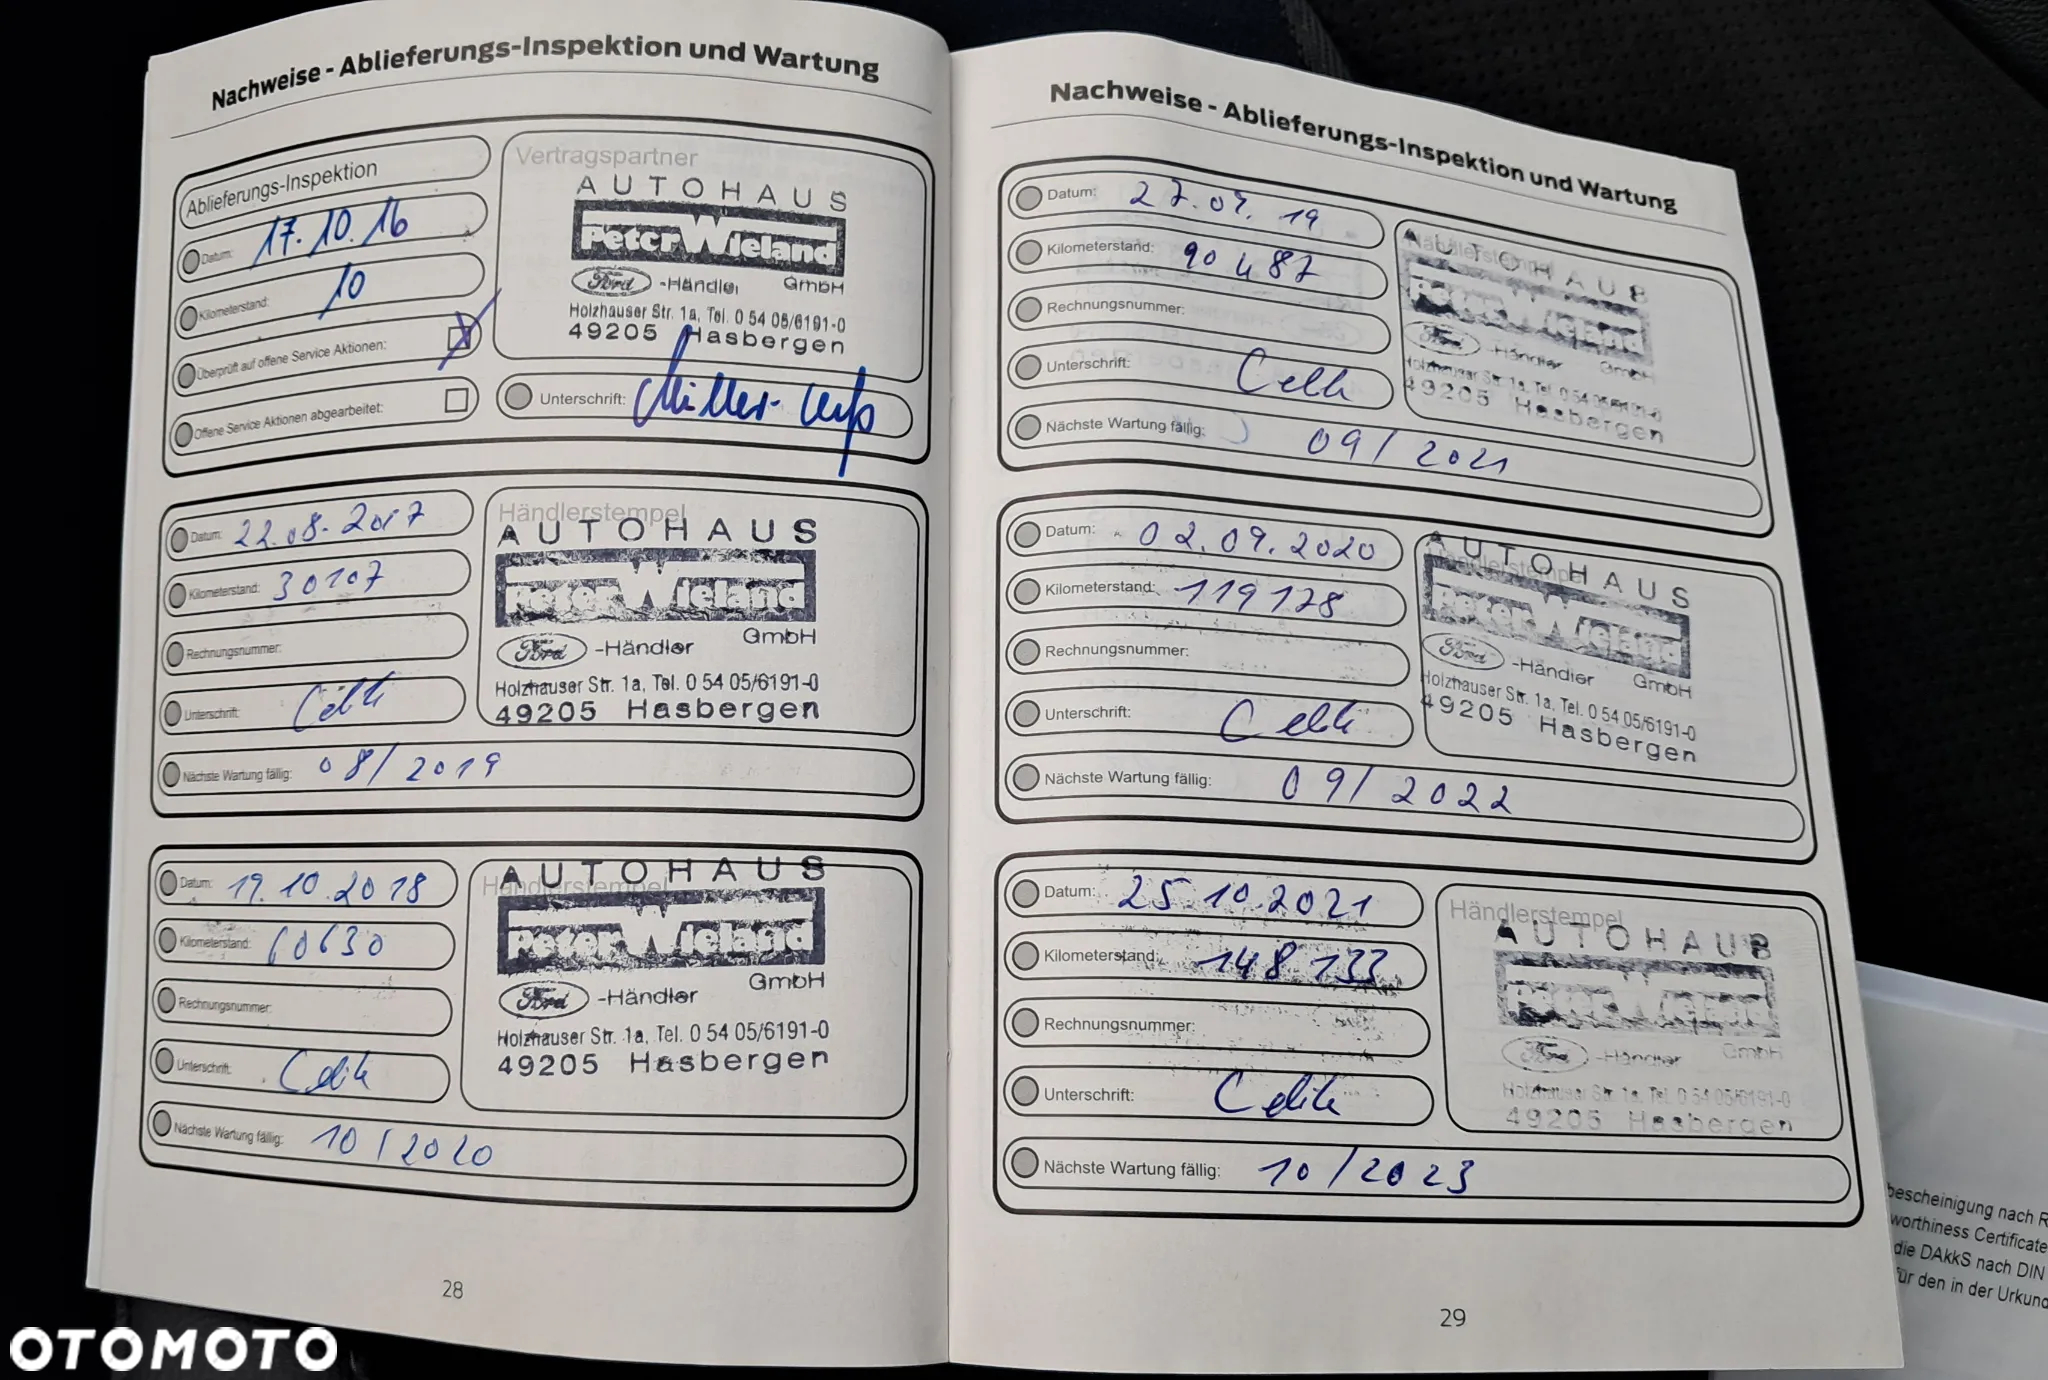 Nachweise - Ablieferungs-Inspektion und Wartung
Ablieferungs-Inspektion
Datum: 17.10.16
Kilometerstand: 10
Überprüft auf offene Service Aktionen:
Offene Service Aktionen abgearbeitet:
Vertragspartner
AUTOHAUS
Peter Wieland
Ford -Händler GmbH
Holzhauser Str. 1a, Tel. 0 54 05/6191-0
49205 Hasbergen
Unterschrift:
Datum: 22.08.2017
Kilometerstand: 30107
Rechnungsnummer:
Unterschrift:
Nächste Wartung fällig: 08/2019
Händlerstempel
AUTOHAUS
Peter Wieland
GmbH
Ford -Händler
Holzhauser Str. 1a, Tel. 0 54 05/6191-0
49205 Hasbergen
Datum: 19.10.2018
Kilometerstand: 60630
Rechnungsnummer:
Unterschrift:
Nächste Wartung fällig: 10/2020
Händlerstempel
AUTOHAUS
Peter Wieland
GmbH
Ford -Händler
Holzhauser Str. 1a, Tel. 0 54 05/6191-0
49205 Hasbergen
28
Nachweise - Ablieferungs-Inspektion und Wartung
Datum: 27.09.19
Kilometerstand: 90487
Rechnungsnummer:
Unterschrift:
Nächste Wartung fällig: 09/2021
Händlerstempel
AUTOHAUS
Peter Wieland
Ford -Händler GmbH
Holzhauser Str. 1a, Tel. 0 54 05/6191-0
49205 Hasbergen
Datum: 02.09.2020
Kilometerstand: 119178
Rechnungsnummer:
Unterschrift:
Nächste Wartung fällig: 09/2022
Händlerstempel
AUTOHAUS
Peter Wieland
Ford -Händler GmbH
Holzhauser Str. 1a, Tel. 0 54 05/6191-0
49205 Hasbergen
Datum: 25.10.2021
Kilometerstand: 148133
Rechnungsnummer:
Unterschrift:
Nächste Wartung fällig: 10/2023
Händlerstempel
AUTOHAUS
Peter Wieland
Ford -Händler GmbH
Holzhauser Str. 1a, Tel. 0 54 05/6191-0
49205 Hasbergen
29
bescheinigung nach R
worthiness Certificate
die DAkkS nach DIN
für den in der Urkund
OTOMOTO